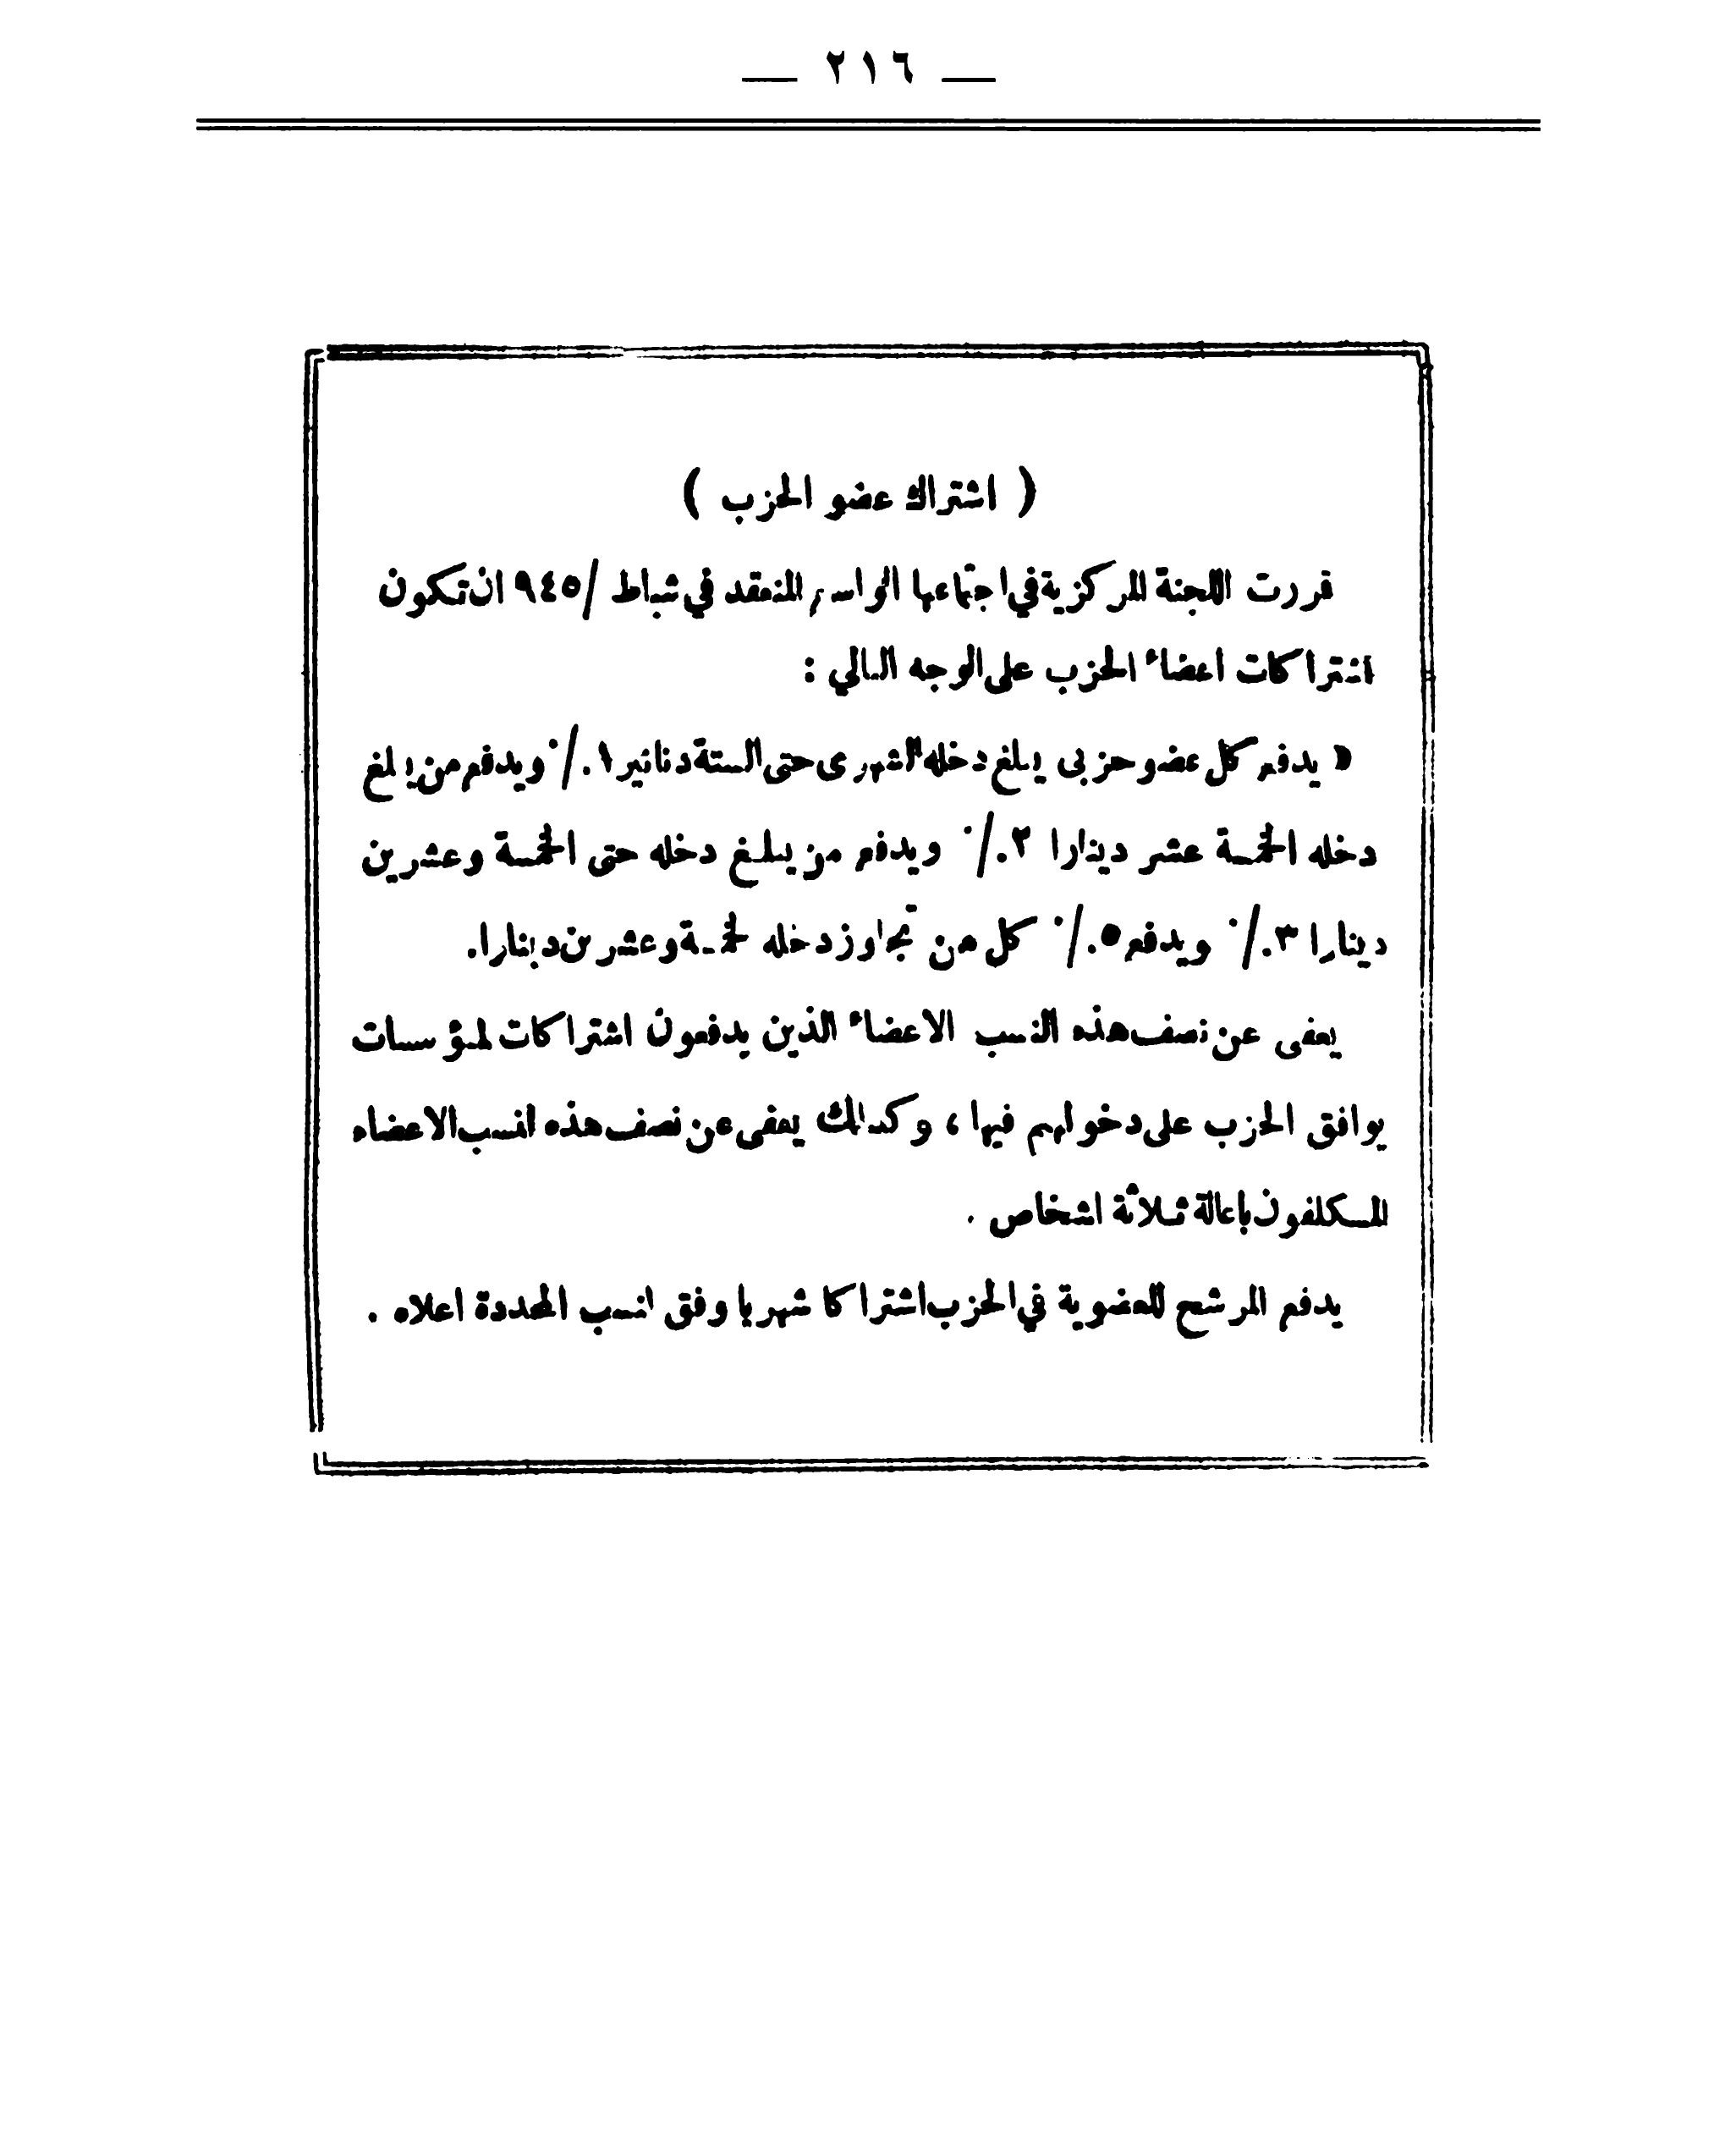 — ٢١٦ —
( اشتراك عضو الحزب )
قررت اللجنة المركزية في اجتماعها الواسع المنعقد في شباط /٩٤٥ ان تكون
اشتراكات اعضاء الحزب على الوجه التالي :
« يدفع كل عضو حزبي يبلغ دخله الشهري حتى الستة دنانير ١٪ ويدفع من يبلغ
دخله الخمسة عشر دينارا ٢٪ ويدفع من يبلغ دخله حتى الخمسة وعشرين
دينارا ٣٪ ويدفع ٥٪ كل من تجاوز دخله لخمسة وعشرين دينارا.
يعفى عن نصف هذه النسب الاعضاء الذين يدفعون اشتراكات لمؤسسات
يوافق الحزب على دخولهم فيها ، وكذلك يعفى عن نصف هذه النسب الاعضاء
المكلفون باعالة ثلاثة اشخاص .
يدفع المرشح للعضوية في الحزب اشتراكا شهريا وفق النسب المحددة اعلاه .